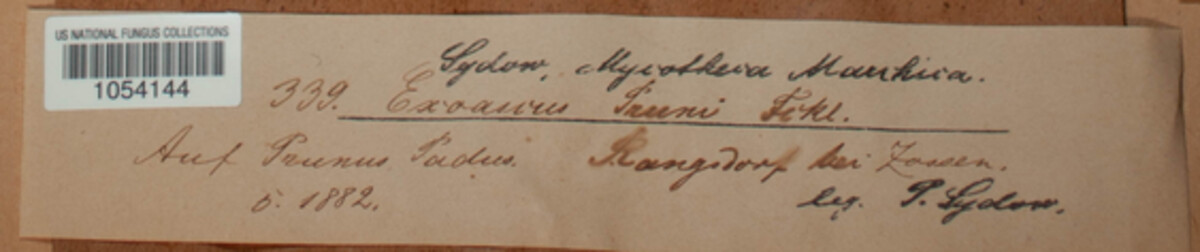 US NATIONAL FUNGUS COLLECTIONS
1054144
Sydow, Mycotheca Marchica.
339. Exoascus Pruni Fckl.
Auf Prunus Padus. Rangsdorf bei Zossen.
5. 1882. leg. P. Sydow.